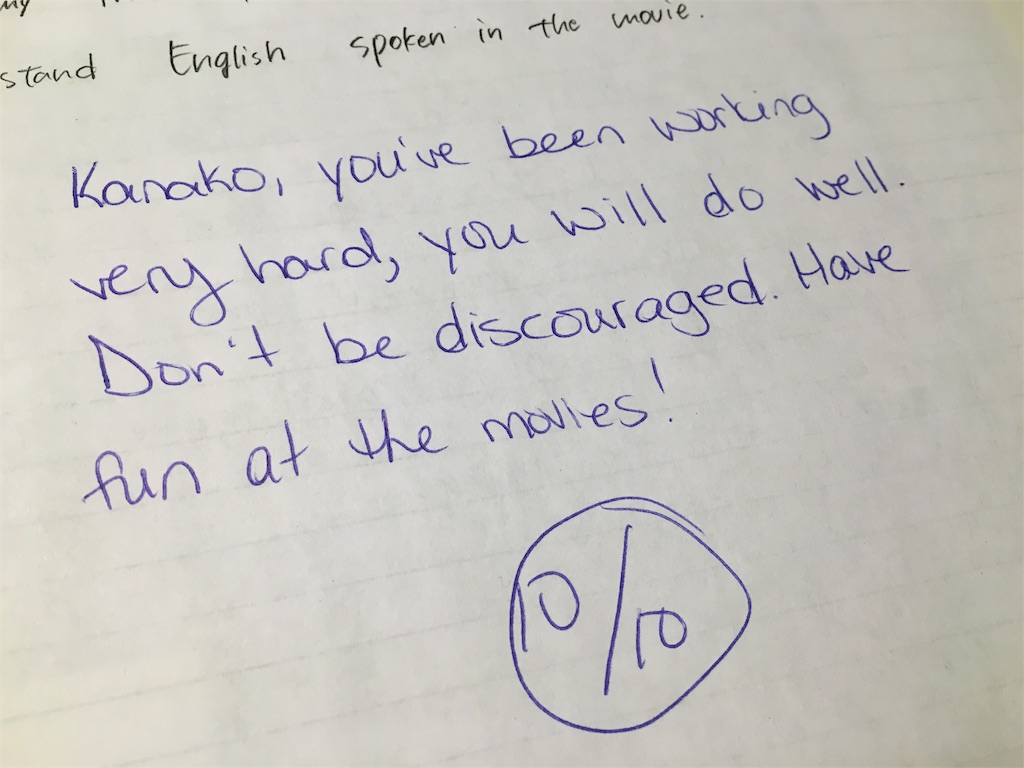 my
stand English spoken in the movie.
Kanako, you've been working
very hard, you will do well.
Don't be discouraged. Have
fun at the movies!
10/10